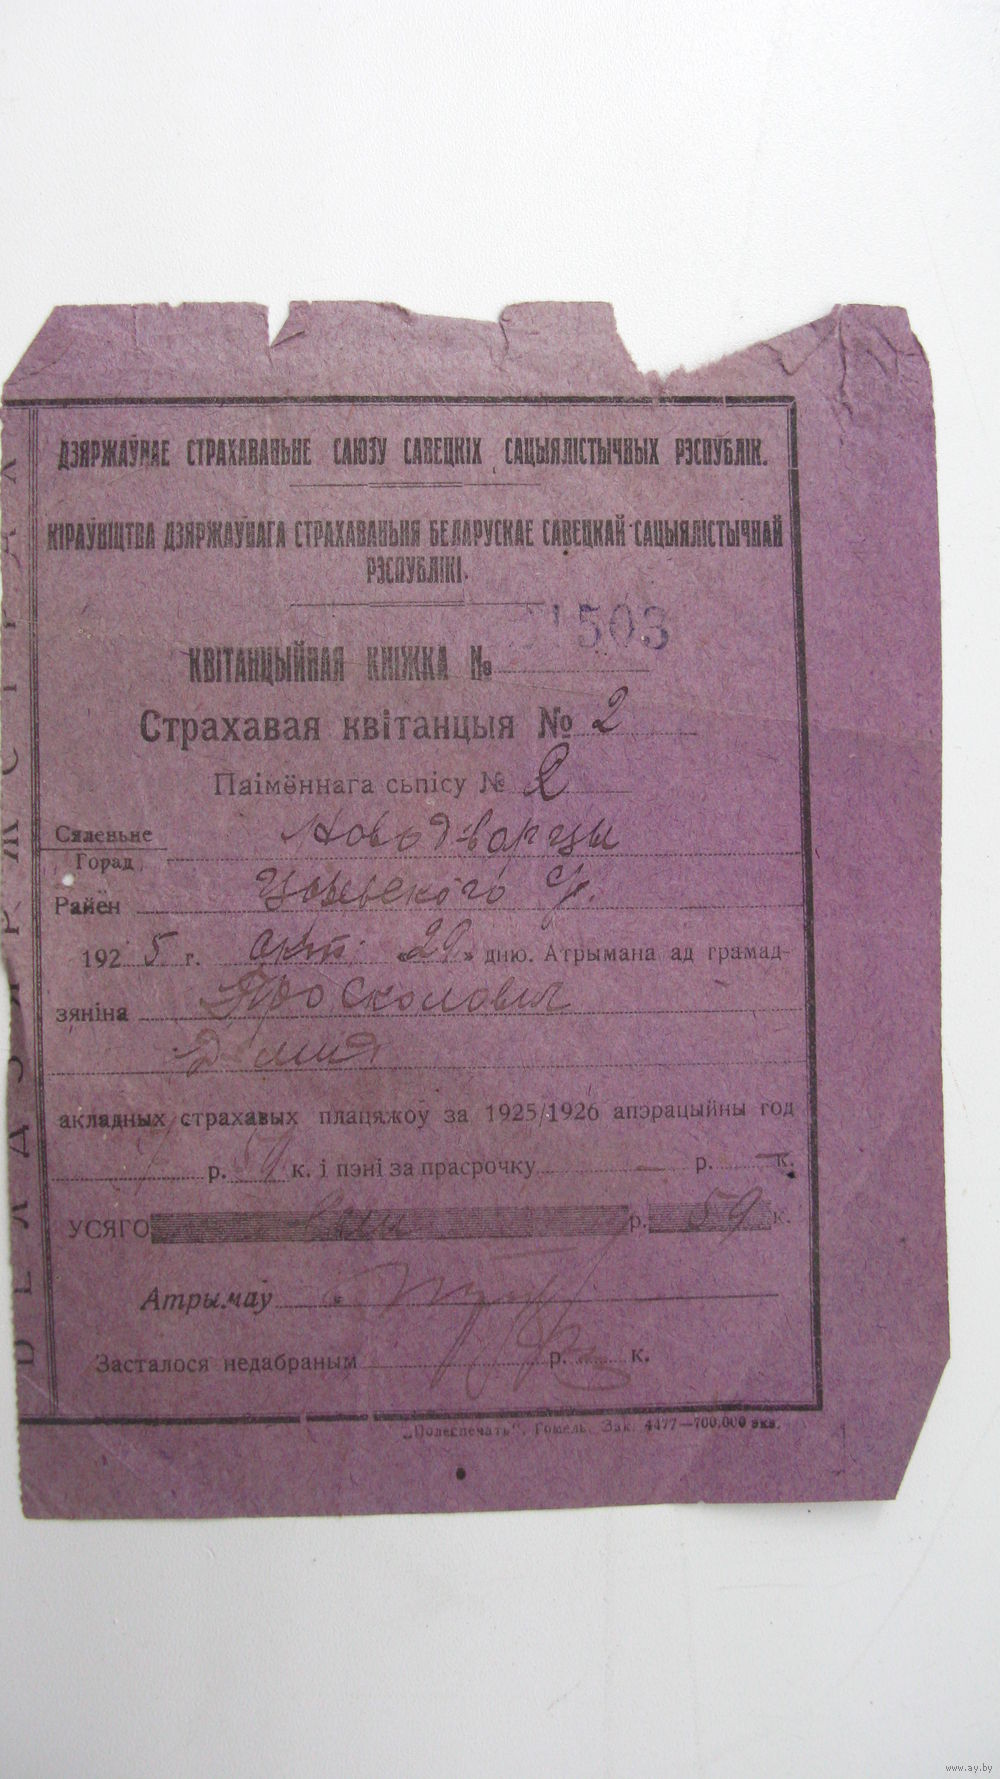 ДЗЯРЖАЎНАЕ СТРАХАВАНЬНЕ САЮЗУ САВЕЦКІХ САЦЫЯЛІСТЫЧНЫХ РЭСПУБЛІК.
КІРАЎНІЦТВА ДЗЯРЖАЎНАГА СТРАХАВАНЬНЯ БЕЛАРУСКАЕ САВЕЦКАЙ САЦЫЯЛІСТЫЧНАЙ
РЭСПУБЛІКІ.
1503
КВІТАНЦЫЙНАЯ КНІЖКА №
Страхавая квітанцыя № 2
Паімённага сьпісу № 2
Сяленьне Новодворцы
Горад
Раён
192 5 г. окт. «29» дню. Атрымана ад грамад-
зяніна Просколович
акладных страхавых плацяжоў за 1925/1926 апэрацыйны год
р. 59 к. і пэні за прасрочку — р. — к.
УСЯГО р. 59 к.
Атрымаў
Засталося недабраным р. к.
„Полеспечать“. Гомель. Зак. 4477—700.000 экз.
БЕЛДЗЯРЖСТРАХ
www.ay.by